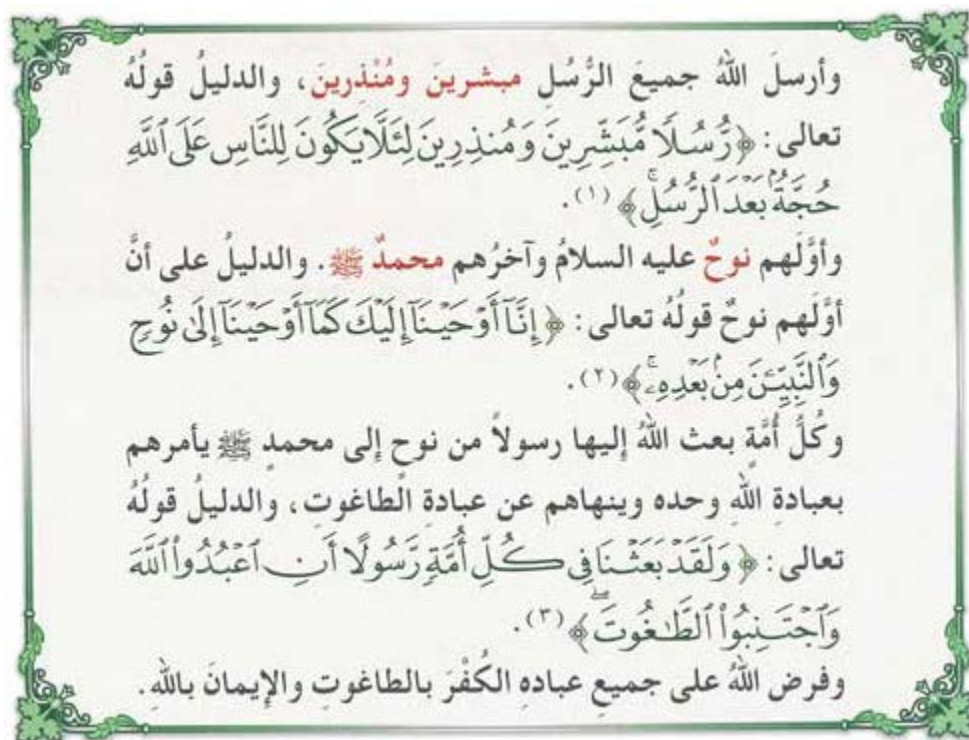 وأرسلَ اللهُ جميعَ الرُّسُلِ مبشرينَ ومُنْذِرينَ، والدليلُ قولُهُ
تعالى: ﴿رُّسُلًا مُّبَشِّرِينَ وَمُنذِرِينَ لِئَلَّا يَكُونَ لِلنَّاسِ عَلَى ٱللَّهِ
حُجَّةُۢ بَعْدَ ٱلرُّسُلِۚ﴾ (١).
وأوَّلَهم نوحٌ عليه السلامُ وآخرُهم محمدٌ ﷺ. والدليلُ على أنَّ
أوَّلَهم نوحٌ قولُهُ تعالى: ﴿إِنَّآ أَوْحَيْنَآ إِلَيْكَ كَمَآ أَوْحَيْنَآ إِلَىٰ نُوحٍ
وَٱلنَّبِيِّـۧنَ مِنۢ بَعْدِهِۦۚ﴾ (٢).
وكُلُّ أُمَّةٍ بعث اللهُ إليها رسولاً من نوحٍ إلى محمدٍ ﷺ يأمرهم
بعبادةِ اللهِ وحده وينهاهم عن عبادةِ الطاغوتِ، والدليلُ قولُهُ
تعالى: ﴿وَلَقَدْ بَعَثْنَا فِي كُلِّ أُمَّةٍ رَّسُولًا أَنِ ٱعْبُدُوا۟ ٱللَّهَ
وَٱجْتَنِبُوا۟ ٱلطَّـٰغُوتَۖ﴾ (٣).
وفرض اللهُ على جميعِ عبادهِ الكُفْرَ بالطاغوتِ والإيمانَ باللهِ.